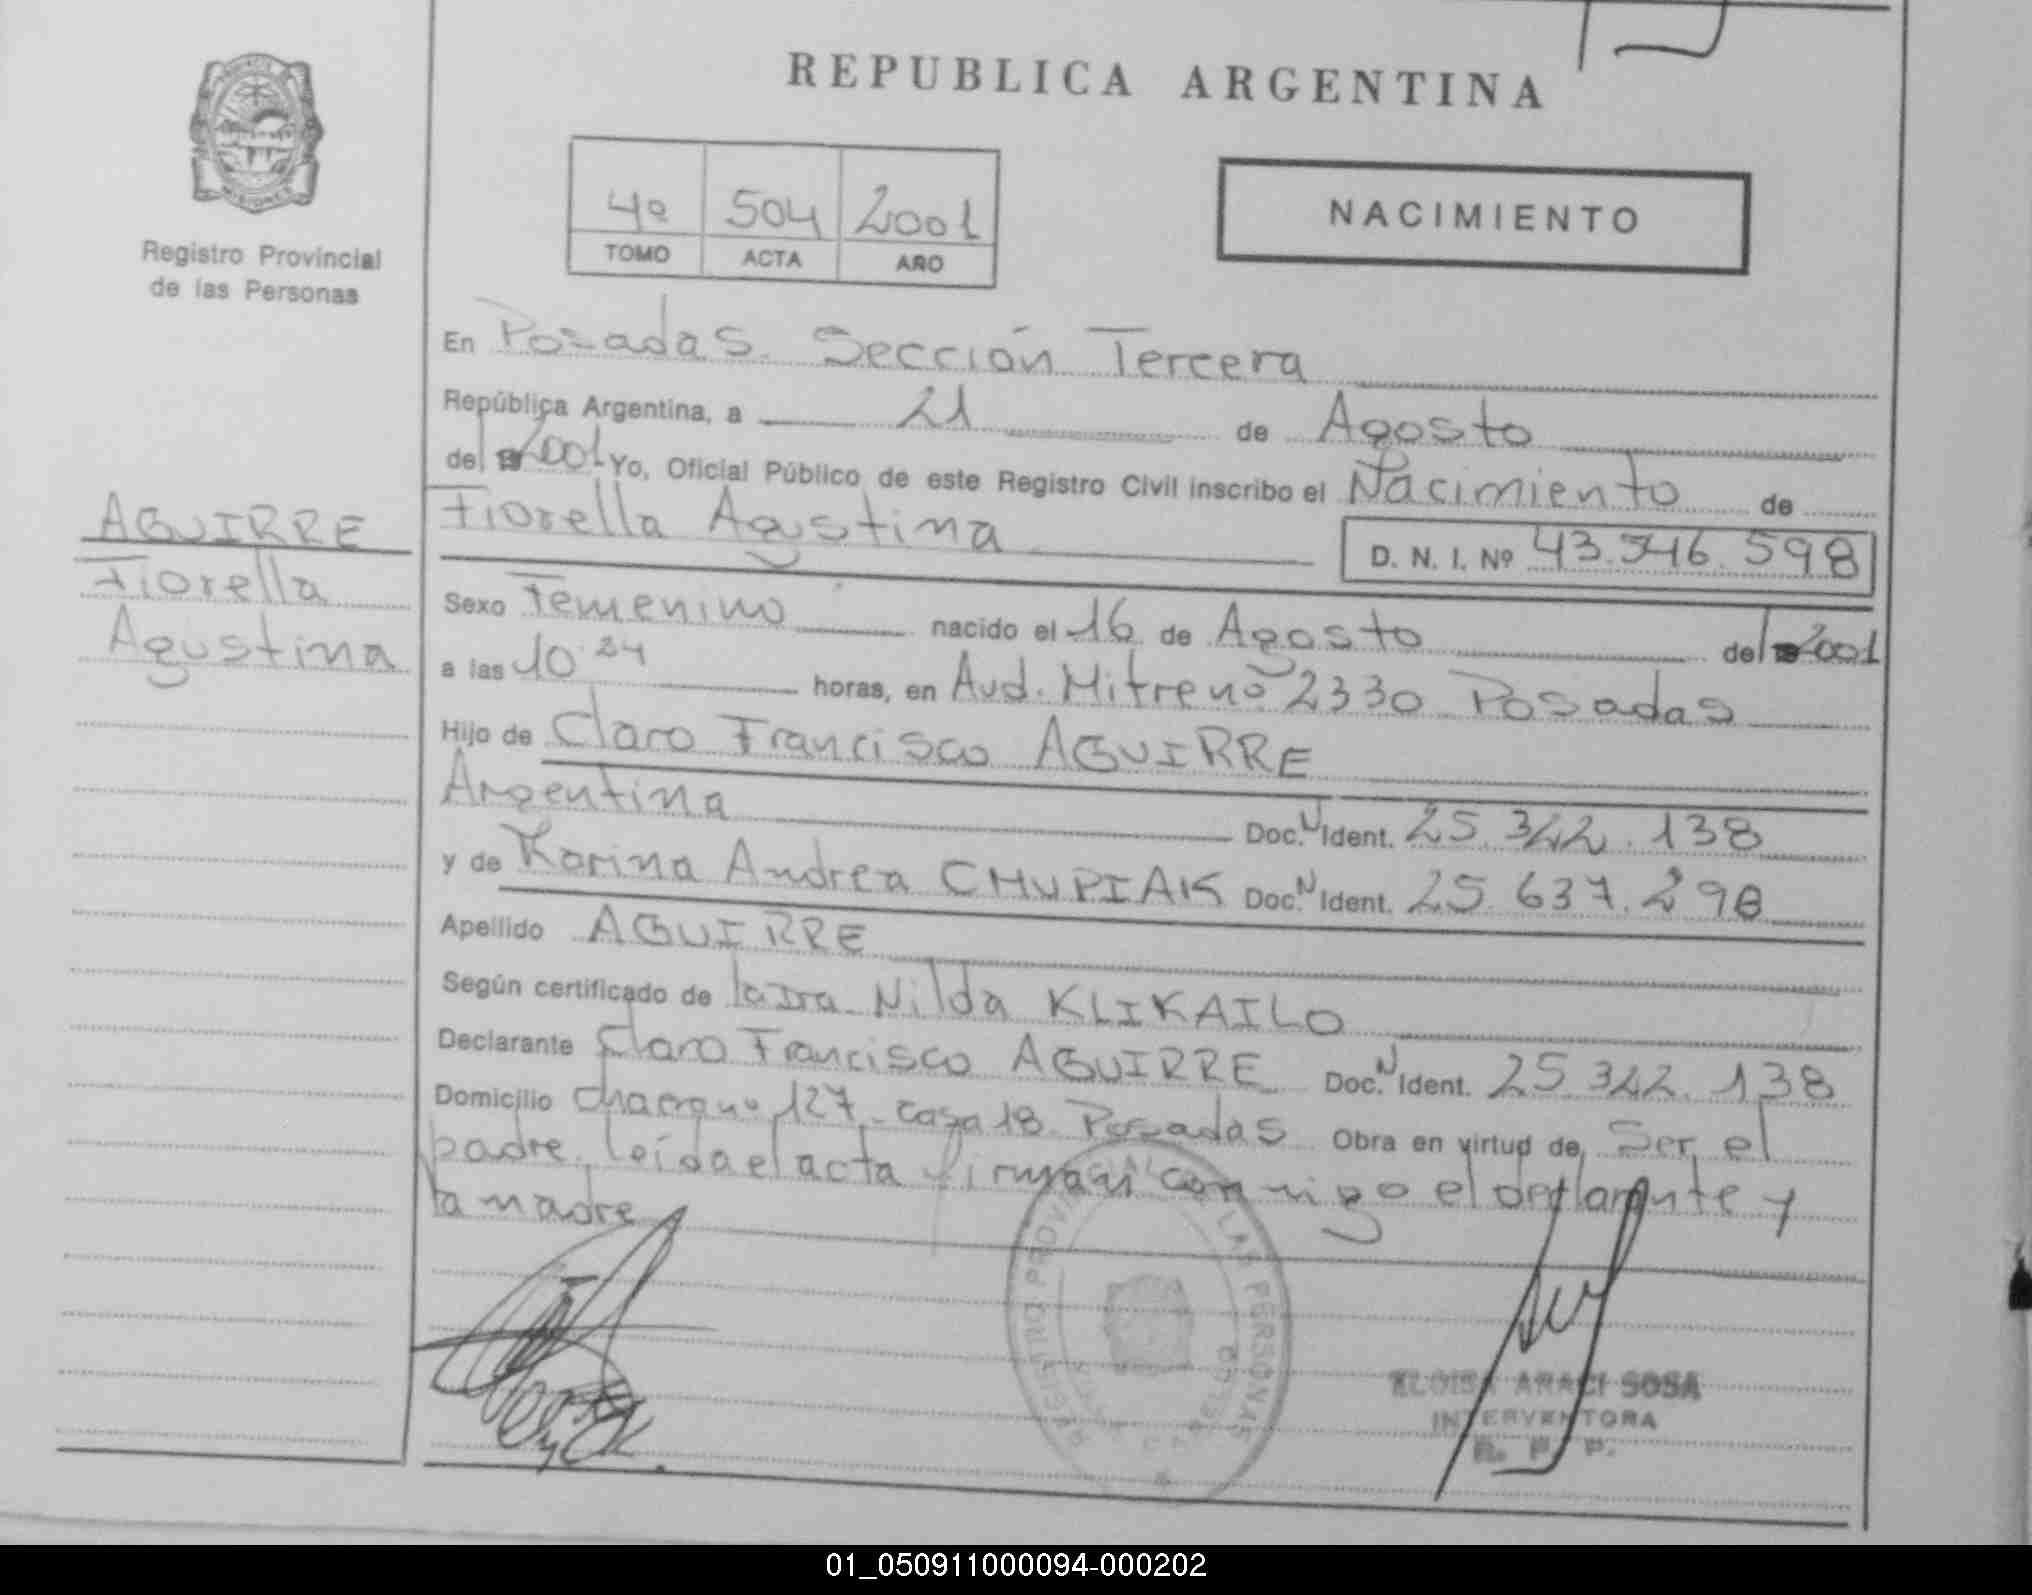 REPUBLICA ARGENTINA
Registro Provincial
de las Personas
4º 504 2001
TOMO ACTA AÑO
NACIMIENTO
AGUIRRE
Fiorella
Agustina
En Posadas Sección Tercera
República Argentina, a 21 de Agosto
del 2001 Yo, Oficial Público de este Registro Civil inscribo el Nacimiento de
Fiorella Agustina D. N. I. Nº 43.546.598
Sexo Femenino nacido el 16 de Agosto del 2001
a las 10 24 horas, en Avd. Mitre nº 2330 Posadas
Hijo de Claro Francisco AGUIRRE
Argentina Doc. N Ident. 25.342.138
y de Karina Andrea CHUPIAK Doc. N Ident. 25.637.298
Apellido AGUIRRE
Según certificado de la Dra. Nilda KLIKAILO
Declarante Claro Francisco AGUIRRE Doc. N Ident. 25.342.138
Domicilio chacra nº 127 - casa 18 Posadas Obra en virtud de Ser el
padre, leída el acta firman conmigo el declarante y
la madre
REGISTRO PROVINCIAL DE LAS PERSONAS
ELOISA ARACI SOSA
INTERVENTORA
R. P. P.
01_050911000094-000202